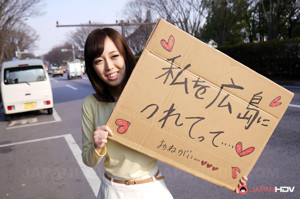 私を広島に
つれてって…
おねがい…
JAPANHDV